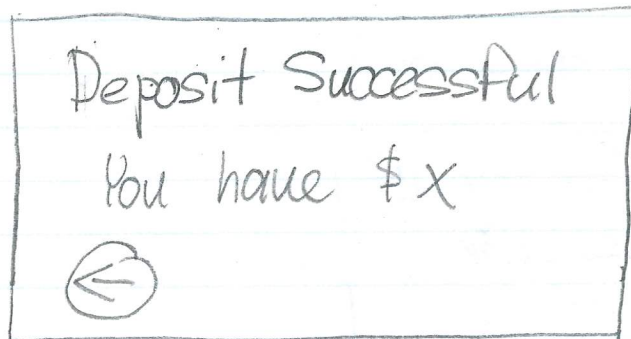 Deposit Successful
You have $ X